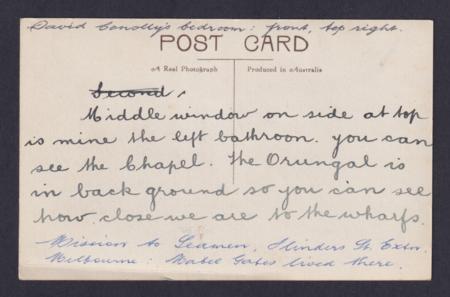 David Conolly's bedroom: front, top right.
POST CARD
A Real Photograph
Produced in Australia
Second.
Middle window on side at top
is mine the left bathroom. you can
see the Chapel. The Orungal is
in back ground so you can see
how close we are to the wharfs.
Mission to Seamen, Flinders St. Extn.
Melbourne: Mabel Gates lived there.